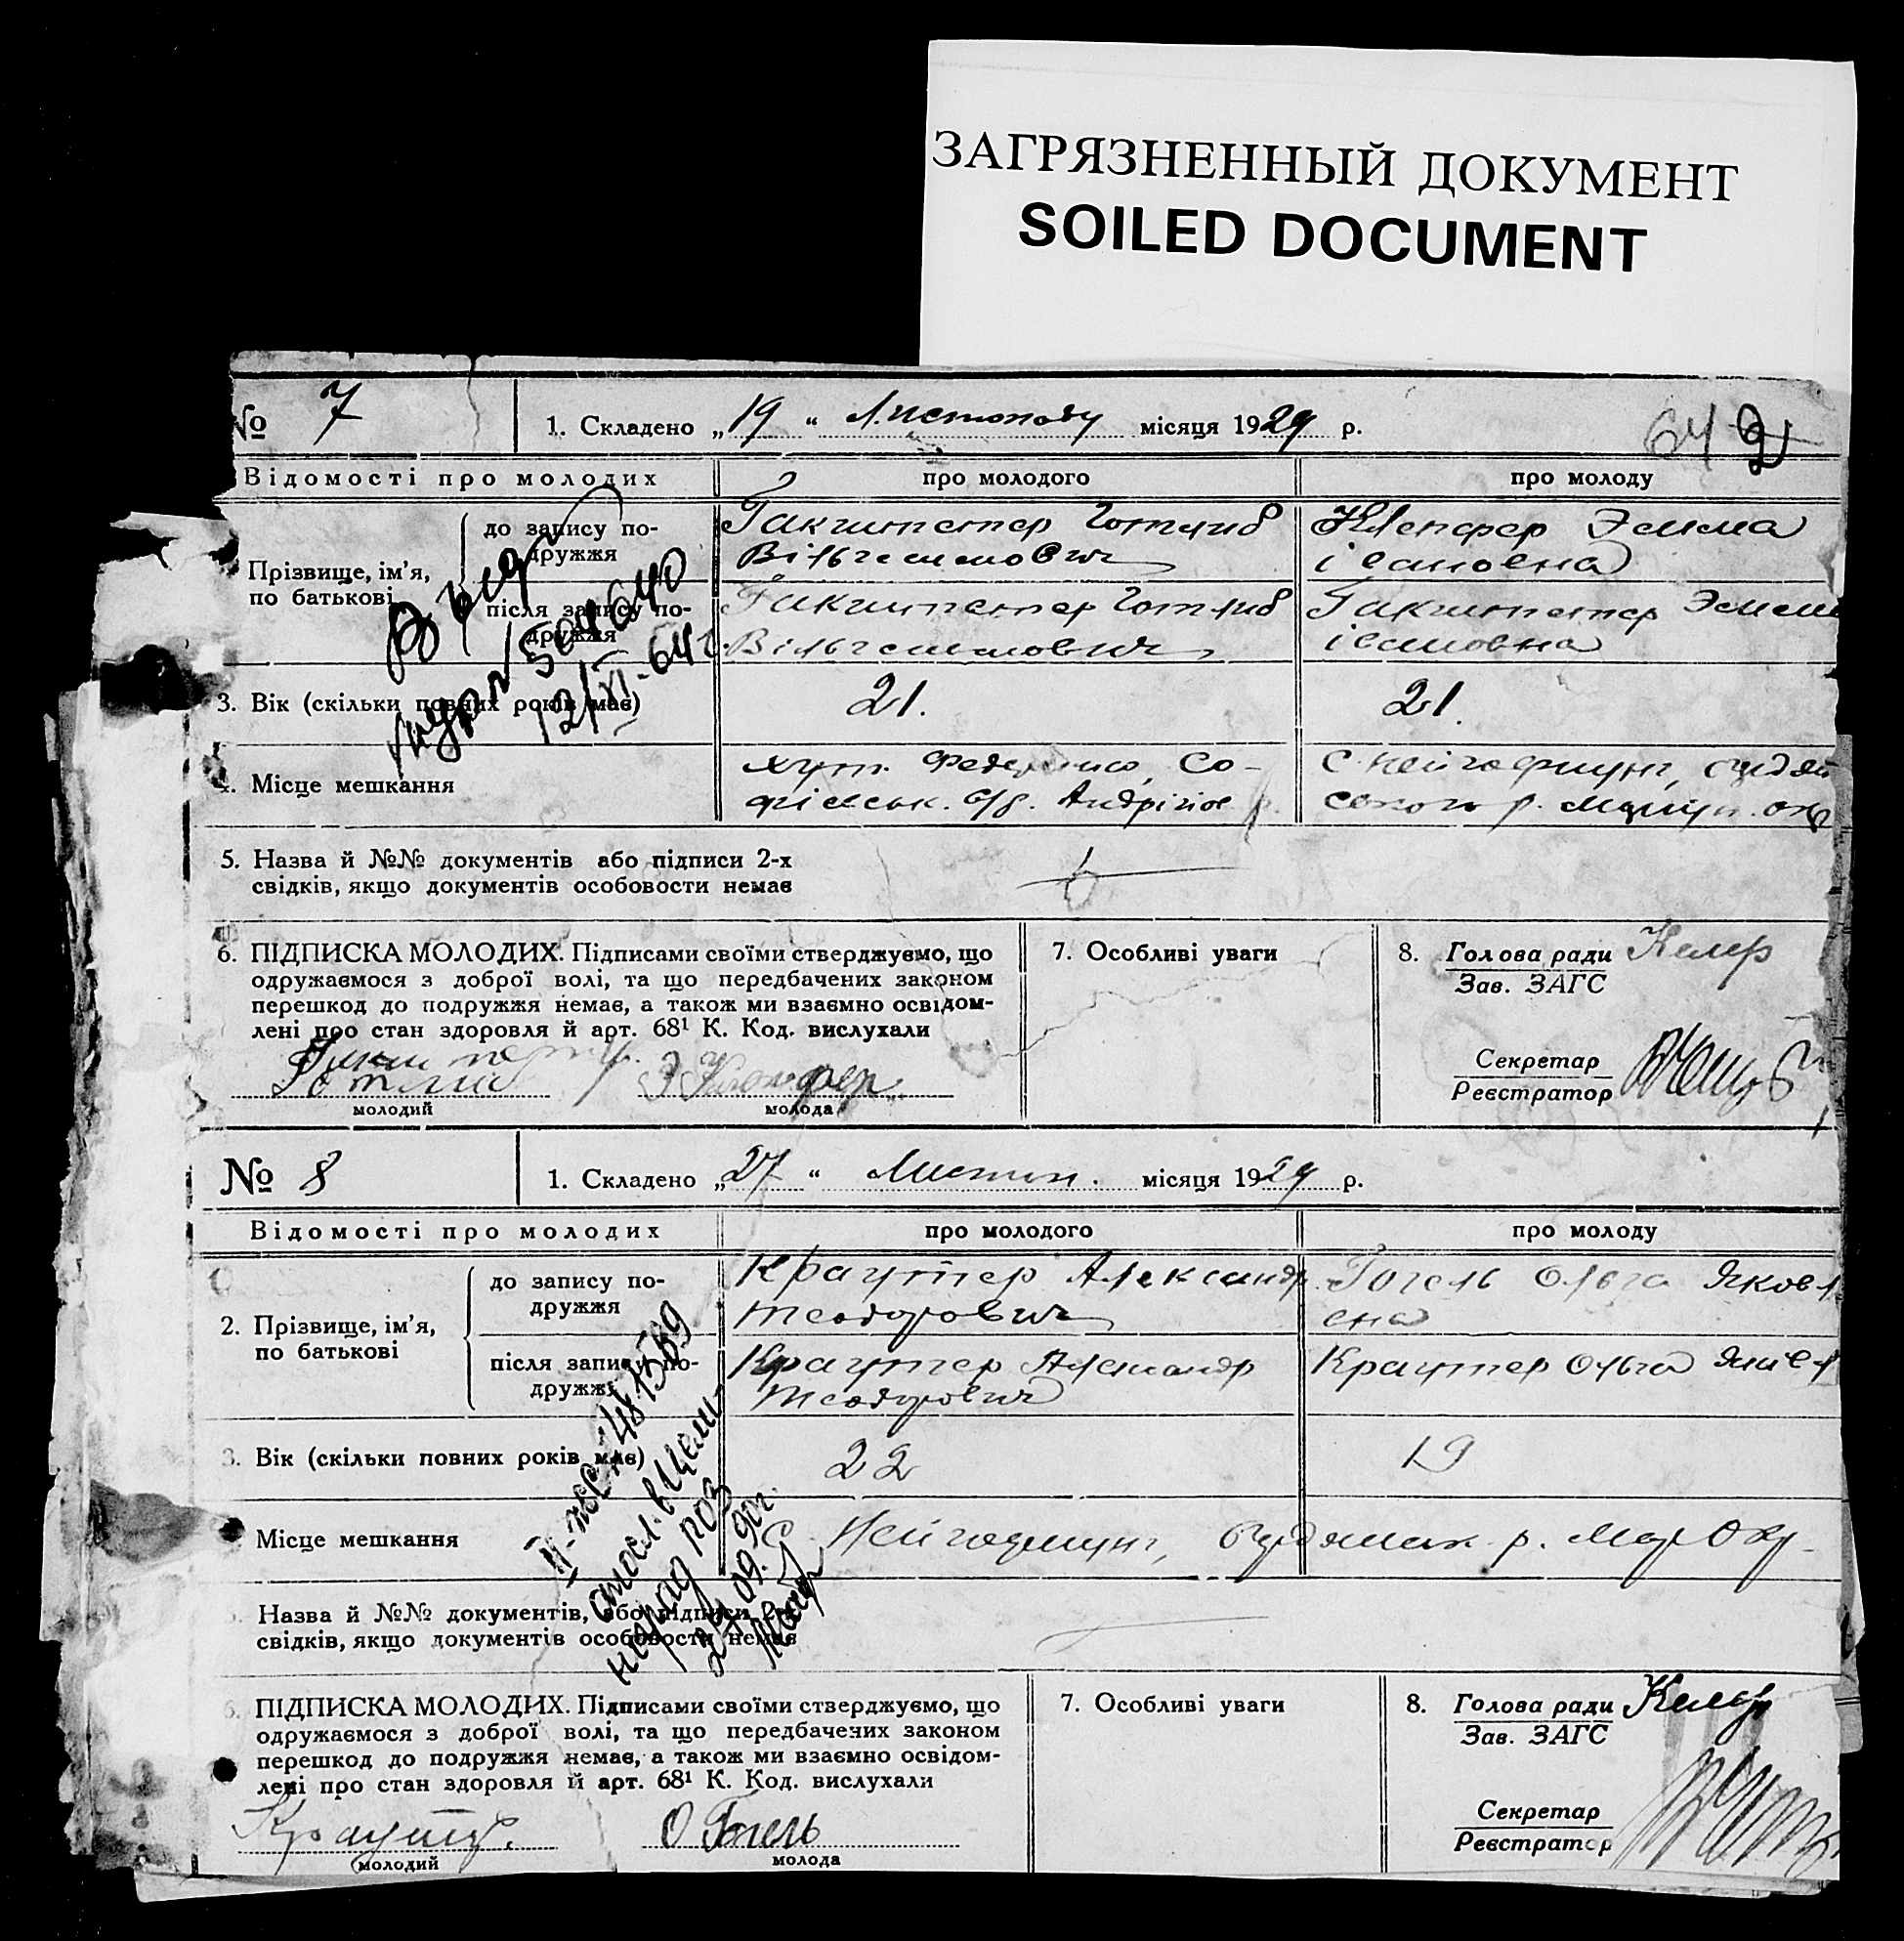 ЗАГРЯЗНЕННЫЙ ДОКУМЕНТ
SOILED DOCUMENT
№ 7
1. Складено „19“ Листопаду місяця 1929 р.
64 2
Відомості про молодих
про молодого
про молоду
Прізвище, ім’я,
по батькові
до запису по-
дружжя
Гакштетер Готлиб
Вільгемнович
Клепфер Эмма
івановна
після запису по-
дружжя
Гакштетер Готлиб
Вільгельмович
Гакштетер
івановна
12/XI-64г.
3. Вік (скільки повних років має)
21.
21.
4. Місце мешкання
хут. Со-
фіевськ. с/р.
5. Назва й №№ документів або підписи 2-х
свідків, якщо документів особовости немає
6. ПІДПИСКА МОЛОДИХ. Підписами своїми стверджуємо, що
одружаємося з доброї волі, та що передбачених законом
перешкод до подружжя немає, а також ми взаємно освідом-
лені про стан здоровля й арт. 68¹ К. Код. вислухали
Готлиб
молодий
молода
7. Особливі уваги
8. Голова ради
Зав. ЗАГС
Келер
Секретар
Реєстратор
№ 8
1. Складено „27“ Листоп. місяця 1929 р.
Відомості про молодих
про молодого
про молоду
2. Прізвище, ім’я,
по батькові
до запису по-
дружжя
Краутер Александр
Теодорович
Гогель Ольга Яковл
ена
після запису по-
дружжя
Краутер Александр
Теодорович
Краутер Ольга
3. Вік (скільки повних років має)
22
19
Місце мешкання
С.
Назва й №№ документів, або підписи 2-х
свідків, якщо документів особовости немає
24.09.90г.
6. ПІДПИСКА МОЛОДИХ. Підписами своїми стверджуємо, що
одружаємося з доброї волі, та що передбачених законом
перешкод до подружжя немає, а також ми взаємно освідом-
лені про стан здоровля й арт. 68¹ К. Код. вислухали
Краутер.
молодий
О Гогель
молода
7. Особливі уваги
8. Голова ради
Зав. ЗАГС
Келер
Секретар
Реєстратор